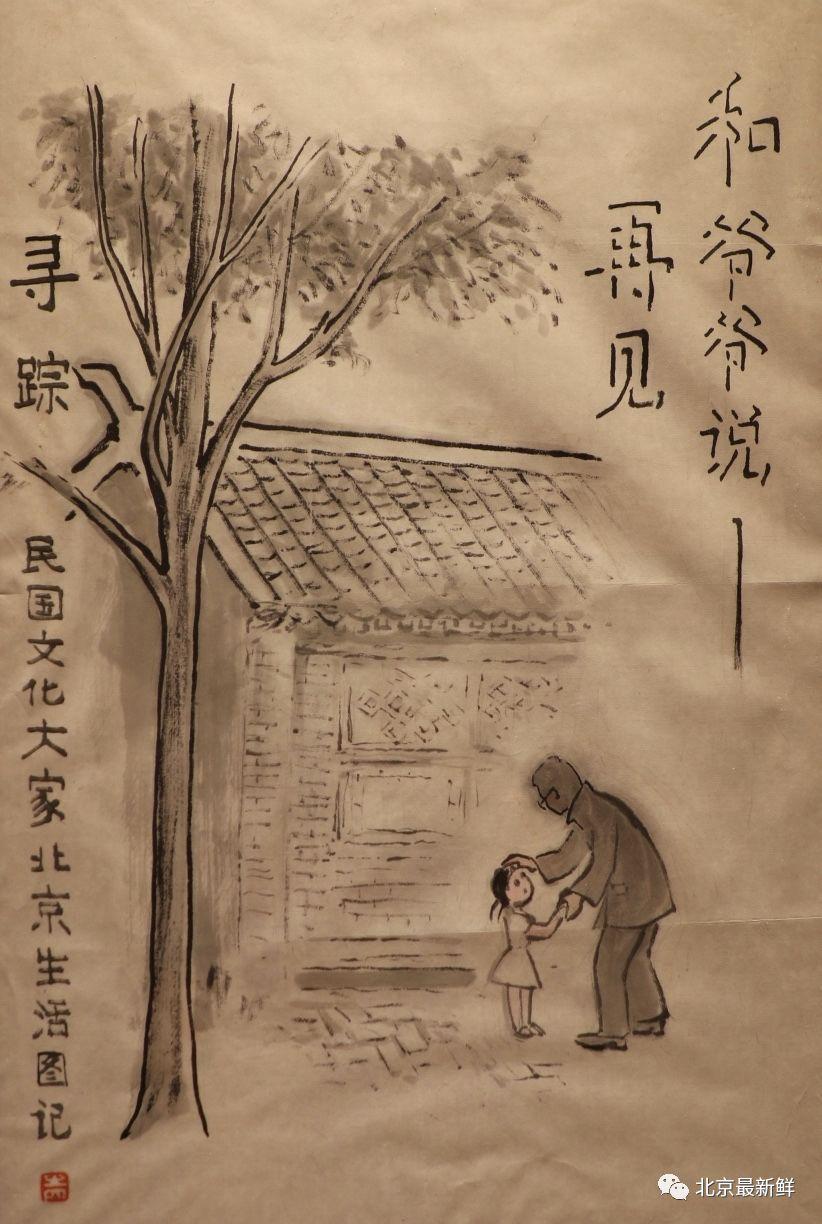 和爷爷说—
再见
寻踪
民国文化大家北京生活图记
北京最新鲜